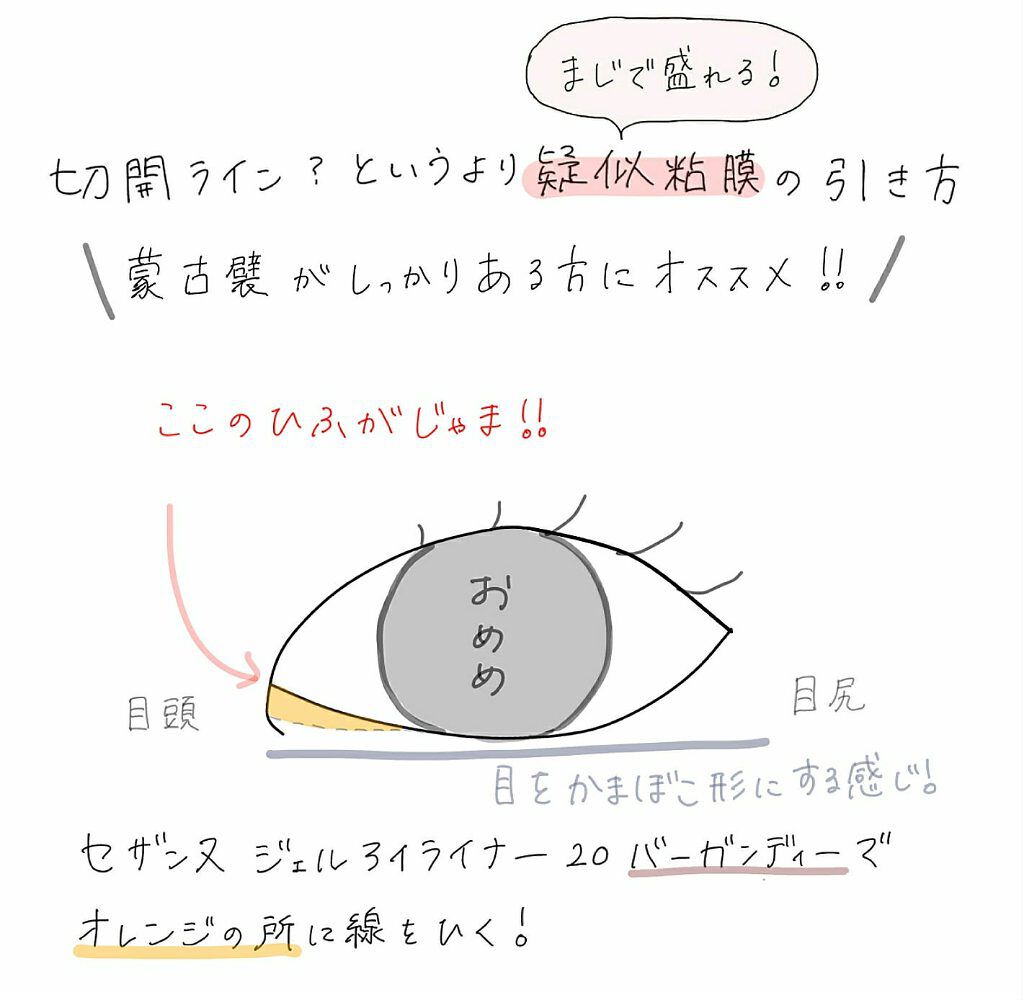 まじで盛れる!
切開ライン?というより疑似粘膜の引き方
蒙古襞がしっかりある方にオススメ!!
ここのひふがじゃま!!
おめめ
目頭
目尻
目をかまぼこ形にする感じ!
セザンヌ ジェルアイライナー20 バーガンディーで
オレンジの所に線をひく!